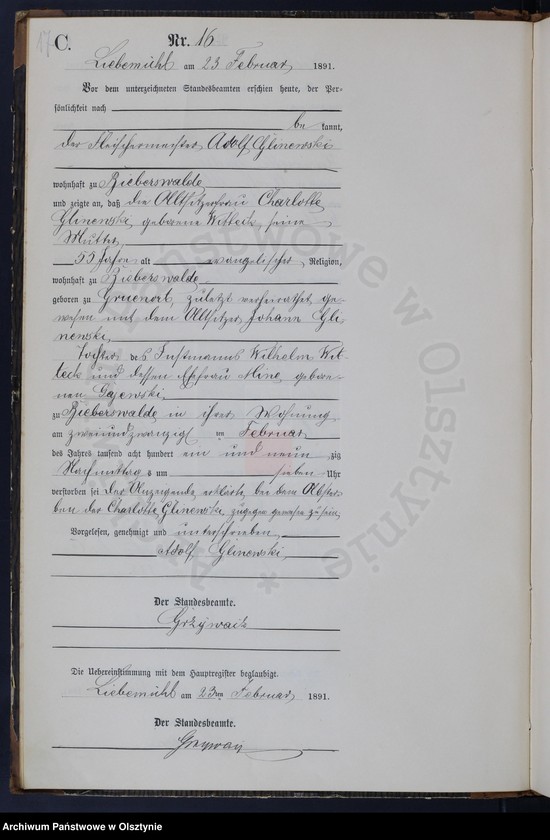 C.
Nr. 16
Liebemühl am 23 Februar 1891.
Vor dem unterzeichneten Standesbeamten erschien heute, der Per-
sönlichkeit nach
be kannt,
der Fleischermeister Adolf Glinewski
wohnhaft zu Bieberswalde
und zeigte an, daß die Altsitzerfrau Charlotte
Glinewski, geborene Witteck, seine
Mutter,
55 Jahre alt evangelischer Religion,
wohnhaft zu Bieberswalde
geboren zu Gruenort, zuletzt verheirathet ge-
wesen mit dem Altsitzer Johann Gli
newski,
Tochter des Instmanns Wilhelm Wit-
teck und dessen Ehefrau Mine, gebore-
nen Gajewski
zu Bieberswalde in ihrer Wohnung
am zweiundzwanzigt en Februar
des Jahres tausend acht hundert ein und neun zig
Nachmittag s um sieben Uhr
verstorben sei Der Anzeigende erklärte, bei dem Abster
ben der Charlotte Glinewski, zugegen gewesen zu sein.
Vorgelesen, genehmigt und unterschrieben
Adolf Glinewski
Der Standesbeamte.
Grzywatz
Die Uebereinstimmung mit dem Hauptregister beglaubigt.
Liebemühl am 23ten Februar 1891.
Der Standesbeamte.
Archiwum Państwowe w Olsztynie
Archiwum Państwowe w Olsztynie